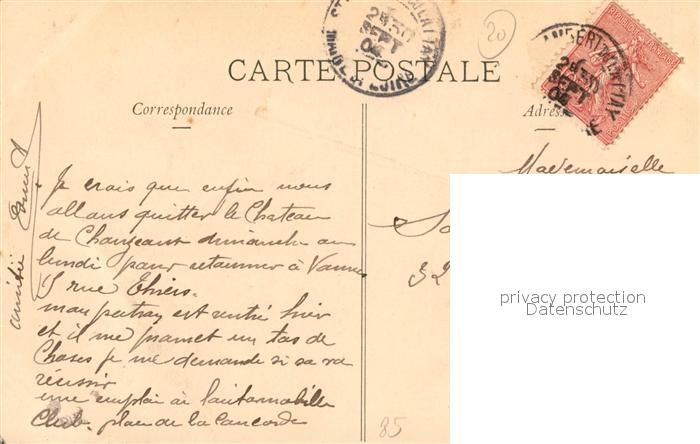 CARTE POSTALE
Correspondance
Adresse
20
Mademoiselle
Je crois que enfin nous
allons quitter le Chateau
de dimanche au
lundi pour retourner à Vannes
rue Thiers.
mon patron est rentré hier
et il me promet un tas de
Choses je me demande si sa va
réussir
une emploi à l'automobille
Club. place de la Concorde
amitié
32
85
privacy protection
Datenschutz